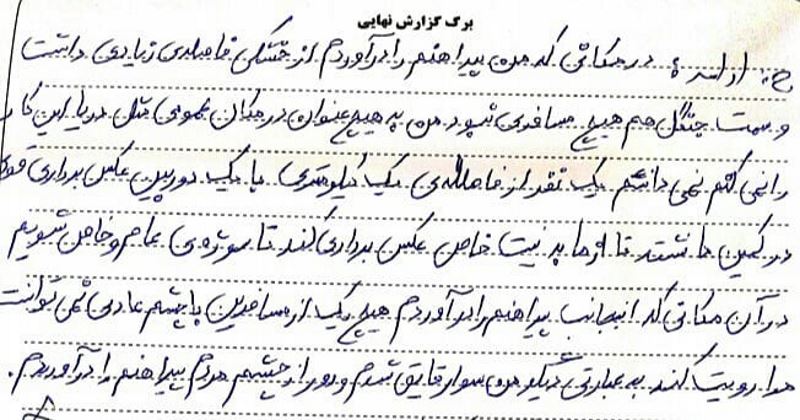 برگ گزارش نهایی
ج: ادامه: در مکانی که من پیراهنم را درآوردم از خشکی فاصله‌ی زیادی داشت
و سمت جنگل هم هیچ مسافری نبود. من به هیچ عنوان در مکان عمومی مثل دریا این کار
را نمی کنم نمی دانستم یک نفر از فاصله‌ی یک کیلومتری با یک دوربین عکس برداری قوی
در کمین ما نشسته تا از ما به نیت خاص عکس برداری کند تا سوژه‌ی عام و خاص شویم
در آن مکانی که اینجانب پیراهنم را درآوردم هیچ یک از مسافرین با چشم عادی نمی توانست
ما را رویت کند به عبارتی دیگر من سوار قایق شدم و دور از چشم مردم پیراهنم را درآوردم.